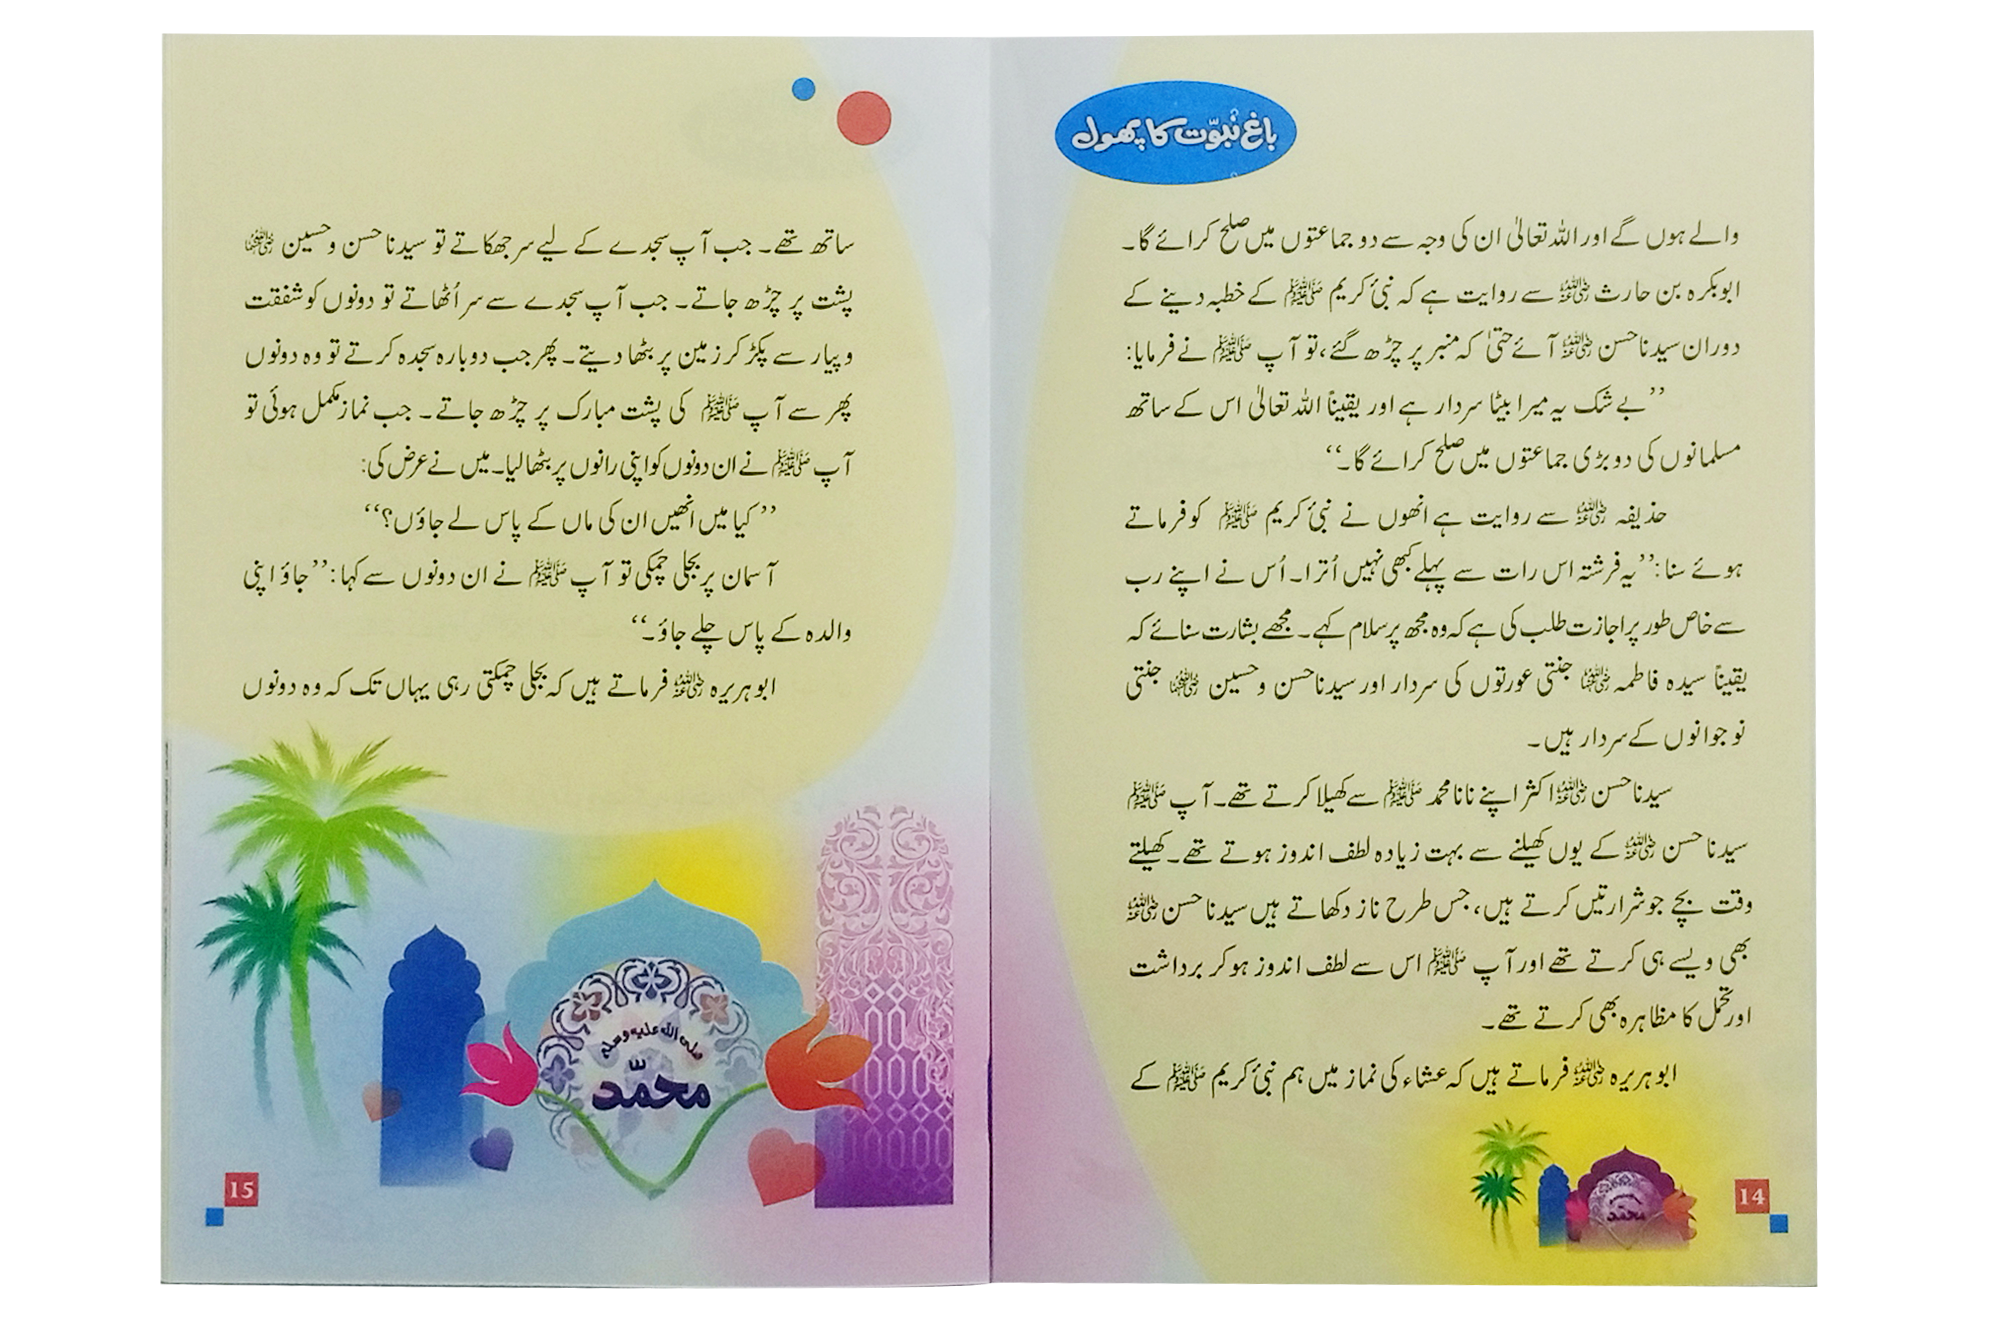 باغِ نبوّت کا پھول
والے ہوں گے اور اللہ تعالیٰ ان کی وجہ سے دو جماعتوں میں صلح کرائے گا۔
ابوبکرہ بن حارث رضی اللہ عنہ سے روایت ہے کہ نبیٔ کریم ﷺ کے خطبہ دینے کے
دوران سیدنا حسن رضی اللہ عنہ آئے حتیٰ کہ منبر پر چڑھ گئے، تو آپ ﷺ نے فرمایا:
’’بے شک یہ میرا بیٹا سردار ہے اور یقیناً اللہ تعالیٰ اس کے ساتھ
مسلمانوں کی دو بڑی جماعتوں میں صلح کرائے گا۔‘‘
حذیفہ رضی اللہ عنہ سے روایت ہے انھوں نے نبیٔ کریم ﷺ کو فرماتے
ہوئے سنا: ’’یہ فرشتہ اس رات سے پہلے کبھی نہیں اُترا۔ اُس نے اپنے رب
سے خاص طور پر اجازت طلب کی ہے کہ وہ مجھ پر سلام کہے۔ مجھے بشارت سنائے کہ
یقیناً سیدہ فاطمہ رضی اللہ عنہا جنتی عورتوں کی سردار اور سیدنا حسن و حسین رضی اللہ عنہما جنتی
نوجوانوں کے سردار ہیں۔
سیدنا حسن رضی اللہ عنہ اکثر اپنے نانا محمد ﷺ سے کھیلا کرتے تھے۔ آپ ﷺ
سیدنا حسن رضی اللہ عنہ کے یوں کھیلنے سے بہت زیادہ لطف اندوز ہوتے تھے۔ کھیلتے
وقت بچے جو شرارتیں کرتے ہیں، جس طرح ناز دکھاتے ہیں سیدنا حسن رضی اللہ عنہ
بھی ویسے ہی کرتے تھے اور آپ ﷺ اس سے لطف اندوز ہو کر برداشت
اور تحمل کا مظاہرہ بھی کرتے تھے۔
ابوہریرہ رضی اللہ عنہ فرماتے ہیں کہ عشاء کی نماز میں ہم نبیٔ کریم ﷺ کے
محمد
14
ساتھ تھے۔ جب آپ سجدے کے لیے سر جھکاتے تو سیدنا حسن و حسین رضی اللہ عنہما
پشت پر چڑھ جاتے۔ جب آپ سجدے سے سر اُٹھاتے تو دونوں کو شفقت
و پیار سے پکڑ کر زمین پر بٹھا دیتے۔ پھر جب دوبارہ سجدہ کرتے تو وہ دونوں
پھر سے آپ ﷺ کی پشت مبارک پر چڑھ جاتے۔ جب نماز مکمل ہوئی تو
آپ ﷺ نے ان دونوں کو اپنی رانوں پر بٹھا لیا۔ میں نے عرض کی:
’’کیا میں انھیں ان کی ماں کے پاس لے جاؤں؟‘‘
آسمان پر بجلی چمکی تو آپ ﷺ نے ان دونوں سے کہا: ’’جاؤ اپنی
والدہ کے پاس چلے جاؤ۔‘‘
ابوہریرہ رضی اللہ عنہ فرماتے ہیں کہ بجلی چمکتی رہی یہاں تک کہ وہ دونوں
صلى الله عليه وسلم
محمّد
15